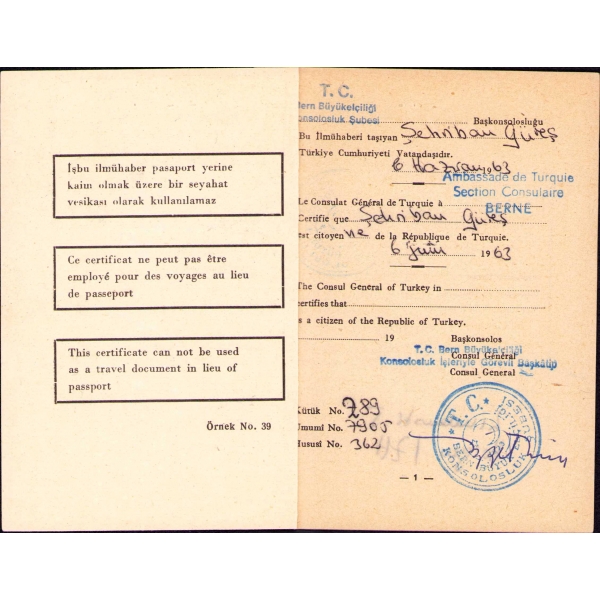 İşbu ilmühaber pasaport yerine
kaim olmak üzere bir seyahat
vesikası olarak kullanılamaz
Ce certificat ne peut pas être
employé pour des voyages au lieu
de passeport
This certificate can not be used
as a travel document in lieu of
passport
Örnek No. 39
T. C.
Bern Büyükelçiliği
Konsolosluk Şubesi
Başkonsolosluğu
Bu İlmühaberi taşıyan Şehriban Güreş
Türkiye Cumhuriyeti Vatandaşıdır.
6 Haziran 63
Ambassade de Turquie
Section Consulaire
BERNE
Le Consulat Général de Turquie à
Certifie que Şehriban Güreş
est citoyenne de la République de Turquie.
6 juin 1963
The Consul General of Turkey in
certifies that
is a citizen of the Republic of Turkey.
19
Başkonsolos
T. C. Bern Büyükelçiliği
Consul Général
Konsolosluk İşleriyle Görevli Başkâtip
Consul General
Kütük No. 289
Umumi No. 7905
Hususî No. 362
T. C.
BERN BÜYÜK
KONSOLOSLUK
— 1 —